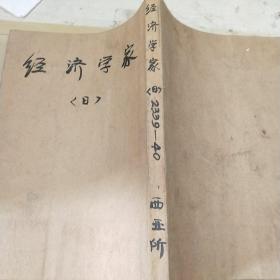 经济学家
<日>
经济学家
<日>
2339—40
西亚所